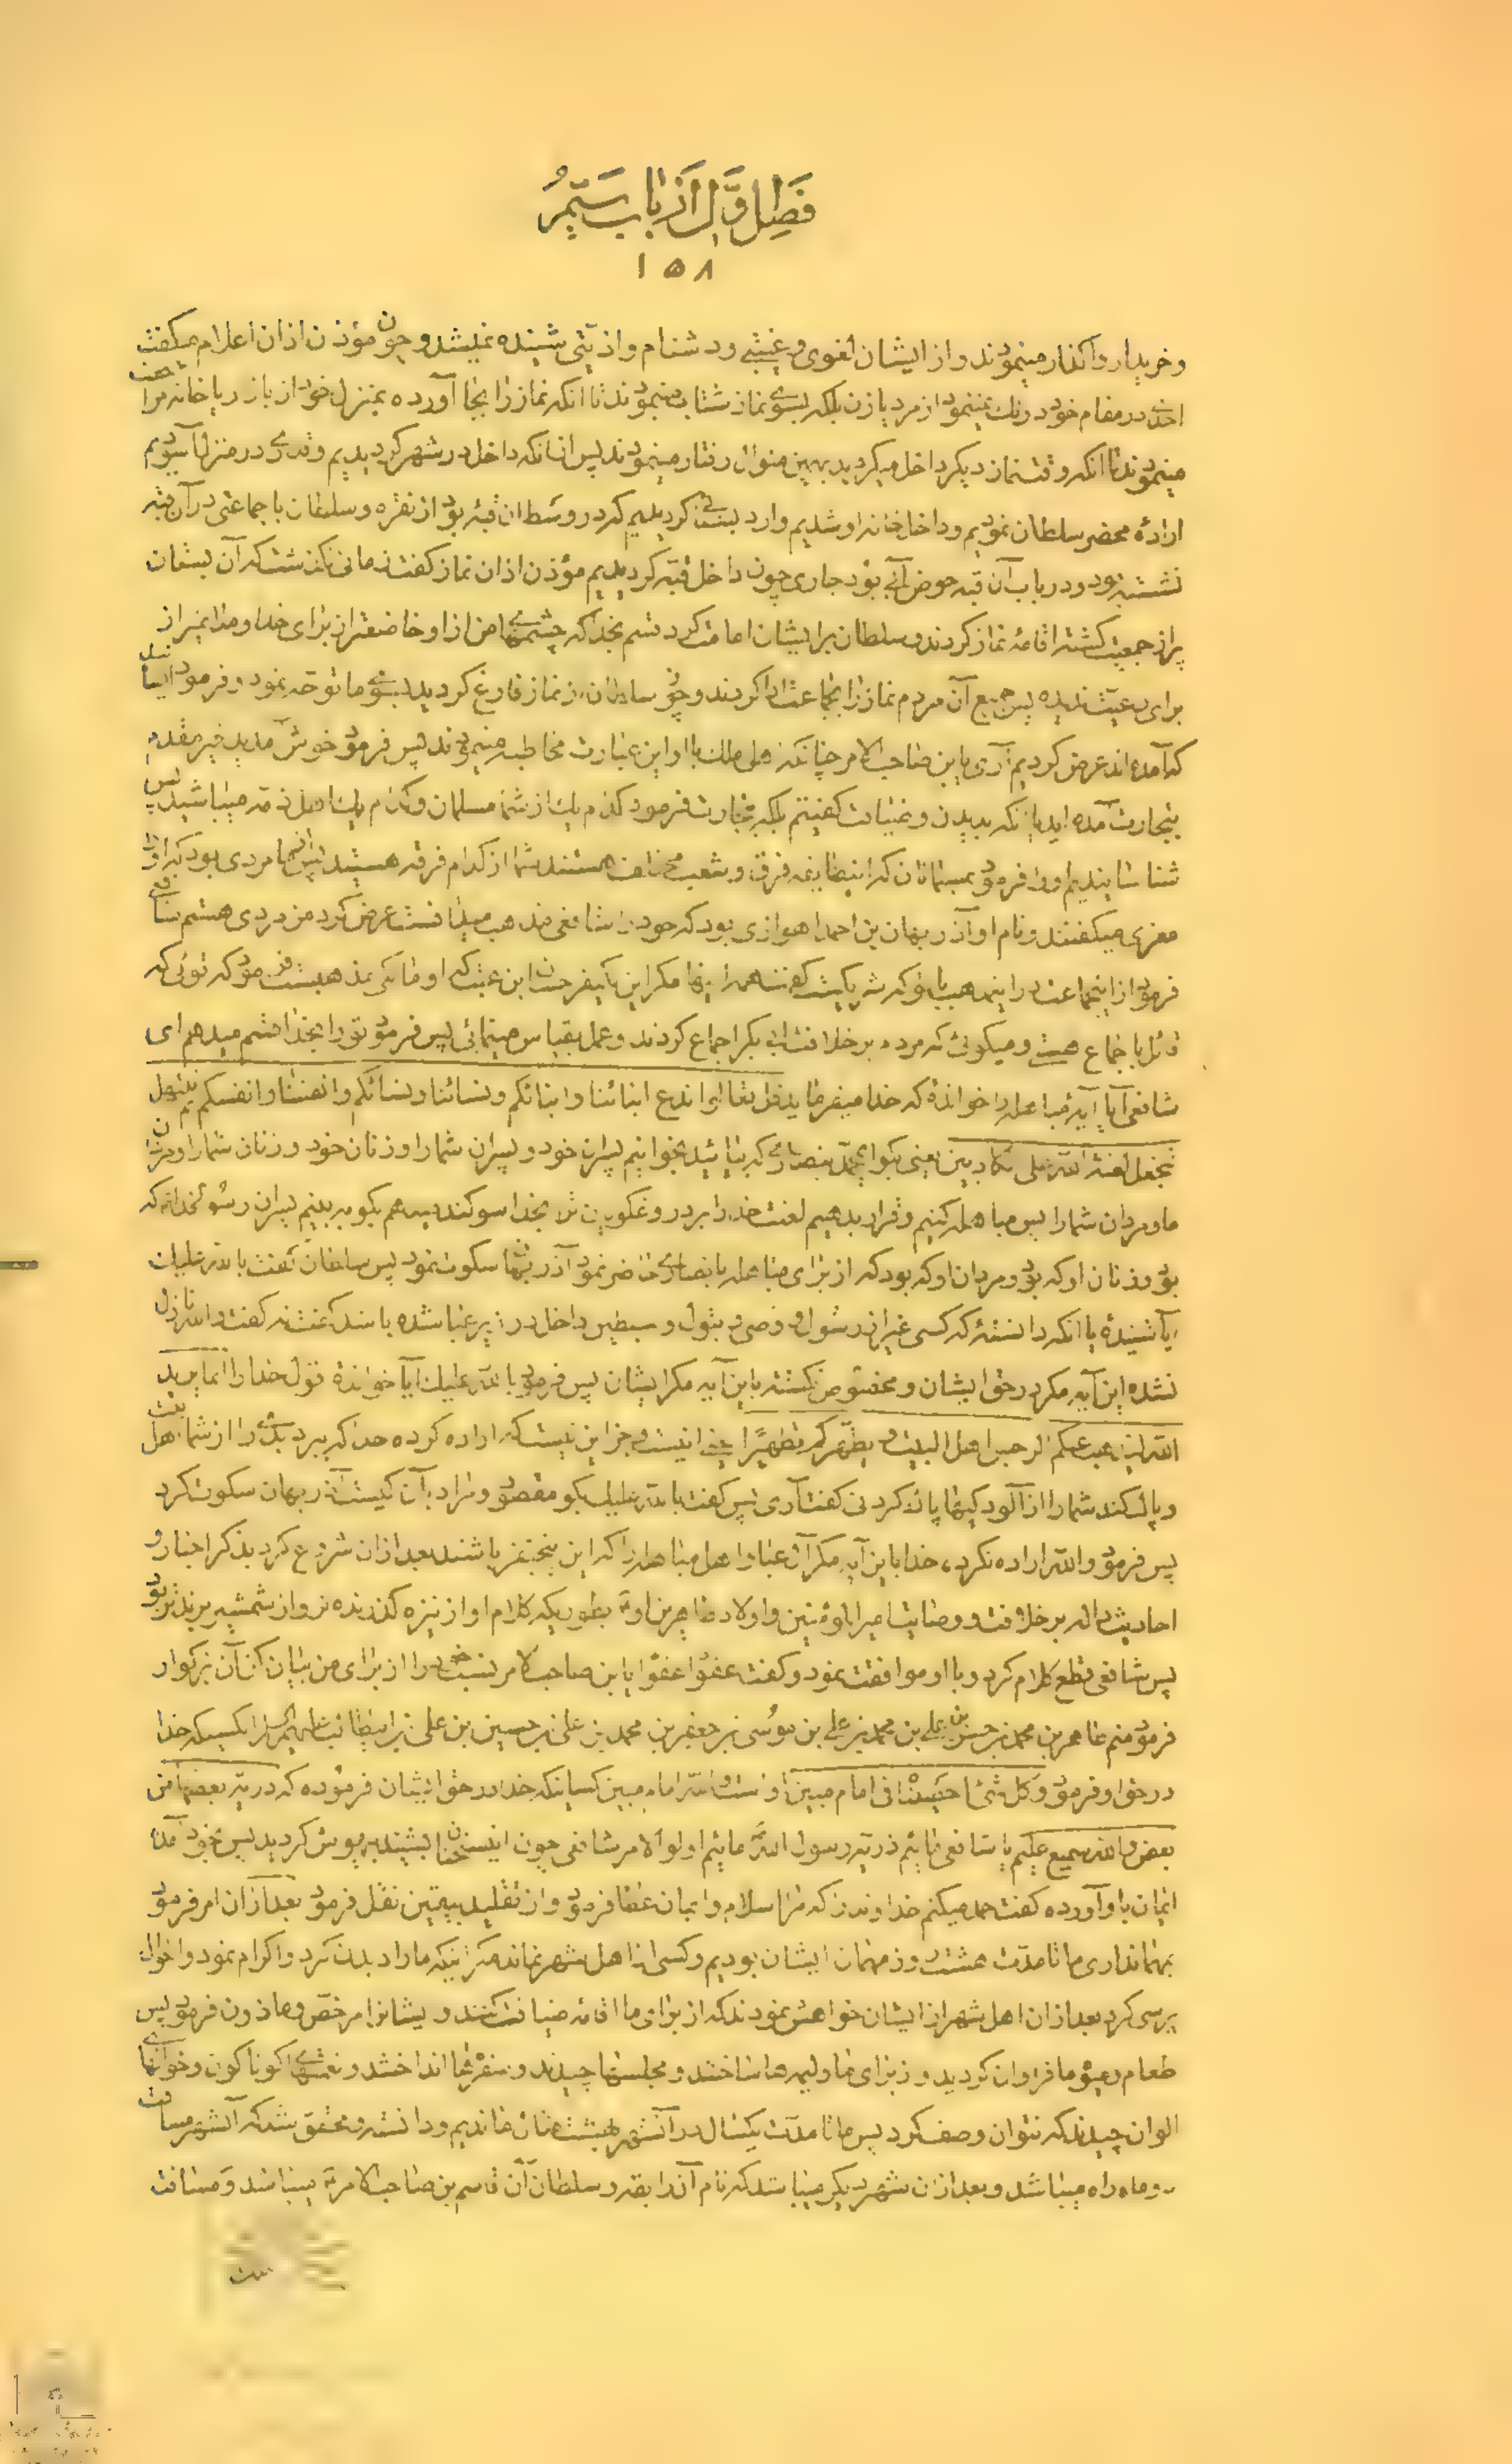 فصل اول از باب سیم
۱۵۸
و خریدار واکذار مینمودند و از ایشان لغوی و غیبتی و دشنام و اذیتی شنیده نمیشد و چون مؤذن اذان اعلام میکفت
احدی در مقام خود درنك نمینمود از مرد یا زن بلکه بسوی نماز شتاب مینمودند تا انکه نماز را بجا آورده بمنزل خود از بازار یا خانه مراجعت
مینمودند تا انکه وقت نماز دیکر داخل میکردید بهمین منوال رفتار مینمودند پس از انکه داخل در شهر کردیدیم و قدری در منزل آسودیم
ارادۀ محضر سلطان نمودیم و داخل خانه او شدیم وارد بستانی کردیدیم که در وسط ان قبۀ بود از نقره و سلطان با جماعتی در آن قبه
نشسته بود و در باب آن قبه حوض آبی بود جاری چون داخل قبه کردیدیم مؤذن اذان نماز کفت زمانی نکذشت که آن بستان
پر از جمعیت کشته اقامۀ نماز کردند و سلطان بر ایشان امامت کرد قسم بخدا که چشمهای من از او خاضعتر از برای خدا و مدارا نمیز از
برای رعیت ندیده پس جمیع آن مردم نماز را بجماعت ادا کردند و چون سلطان از نماز فارغ کردید بسوی ما توجه نمود و فرمود ایشانند
که آمده‌اند عرض کردیم آری یا بن صاحب الامر چنانکه اهل ملك با او باین عبارت مخاطبه مینمودند پس فرمود خوش آمدید خیر مقدم
بتجارت آمده‌اید یا نکه بدیدن و ضیافت کفتیم بلکه بتجارت فرمود کدام یك از شما مسلمان و کدام یك اهل ذمه میباشید پس
شناسانیدیم او را فرمود مسلمانان که اینطایفه فرق و شعب مختلف هستند شما از کدام فرقه هستید پس با ما مردی بود که او را
مغزی میکفتند و نام او آذربهان بن احمد اهوازی بود که خود را شافعی مذهب میدانست عرض کرد من مردی هستم شافعی
فرمود از اینجماعت در اینمذهب با تو که شریکست کفت همه اینها مکر این یکنفر حسان ابن غیث که او مالکی مذهبست فرمود که توئی که
قائل باجماع هستی و میکوئی که مردم بر خلافت ابی بکر اجماع کردند و عمل بقیاس مینمائی پس فرمود تو را بخدا قسم میدهم ای
شافعی آیا آیۀ مباهله را خواندۀ که خدا میفرماید قل تعالوا ندع ابنائنا و ابنائکم و نسائنا و نسائکم و انفسنا و انفسکم ثم نبتهل
فنجعل لعنة الله علی الکاذبین یعنی بکو ای محمد بنصاری که بیائید بخوانیم پسران خود و پسران شما را و زنان خود و زنان شما را و مردان
ما و مردان شما را پس مباهله کنیم و قرار بدهیم لعنت خدا را بر دروغکویان ترا بخدا سوکند میدهم بکو ببینیم پسران رسول خدا که
بود و زنان او که بود و مردان او که بود که از برای مباهله با نصاری حاضر نمود آذربهان سکوت نمود پس سلطان کفت بالله علیك
آیا شنیدۀ یا انکه دانستۀ که کسی غیر از رسول و وصی و بتول و سبطین داخل در زیر عبا شده باشد کفت نه کفت والله نازل
نشده این آیه مکر در حق ایشان و مخصوص نکشته باین آیه مکر ایشان پس فرمود بالله علیك آیا خواندۀ قول خدا را انما یرید
الله لیذهب عنکم الرجس اهل البیت و یطهرکم تطهیرا یعنی اینست و جز این نیست که اراده کرده خدا که ببرد شك را از شما اهل بیت
و پاك کند شما را از آلودکیها پاك کردنی کفت آری پس کفت بالله علیك بکو مقصود و مراد بآن کیست آذربهان سکوت کرد
پس فرمود والله اراده نکرده خدا باین آیه مکر آل عبا و اهل مباهله را که این پنج نفر باشند بعد از ان شروع کرد بذکر اخبار و
احادیث داله بر خلافت و وصایت امیر المؤمنین و اولاد طاهرین او بطوریکه کلام او از نیزه کذرنده تر و از شمشیر برنده تر بود
پس شافعی قطع کلام کرد و با او موافقت نمود و کفت عفوا عفوا یا بن صاحب الامر نسب خود را از برای من بیان کن آن بزرکوار
فرمود منم طاهر بن محمد بن حسن بن علی بن محمد بن علی بن موسی بن جعفر بن محمد بن علی بن حسین بن علی بن ابیطالب علیهم السلام انکسیکه خدا
در حق او فرمود و کل شیء احصیناه فی امام مبین اوست والله امام مبین کسانیکه خدا در حق ایشان فرموده که ذریة بعضها من
بعض والله سمیع علیم یا شافعی مائیم ذریه رسول الله مائیم اولو الامر شافعی چون این سخنان بشنید بیهوش کردید پس بخود آمد
ایمان باو آورده کفت حمد میکنم خداوندی را که مرا اسلام و ایمان عطا فرمود و از تقلید بیقین نقل فرمود بعد از ان امر فرمود
بمهمانداری ما تا مدت هشت روز مهمان ایشان بودیم و کسی از اهل شهر نماند مکر اینکه ما را دیدن کرد و اکرام نمود و احوال
پرسی کرد بعد از ان اهل شهر از ایشان خواهش نمودند که از برای ما اقامه ضیافت کنند و ایشانرا مرخص و ماذون فرمود پس
طعام و میوۀ ما فراوان کردید و از برای ما ولیمه‌ها ساختند و مجلسها چیدند و سفره‌ها انداختند و نعمتهای کوناکون و خوانهای
الوان چیدند که نتوان وصف کرد پس ما تا مدت یکسال در آنشهر بهشت نشان ماندیم و دانسته و محقق شد که آنشهر مسافت
دو ماه راه میباشد و بعد از ان شهر دیکر میباشد که نام آن رابقه و سلطان آن قاسم بن صاحب الامر میباشد و مسافت
است